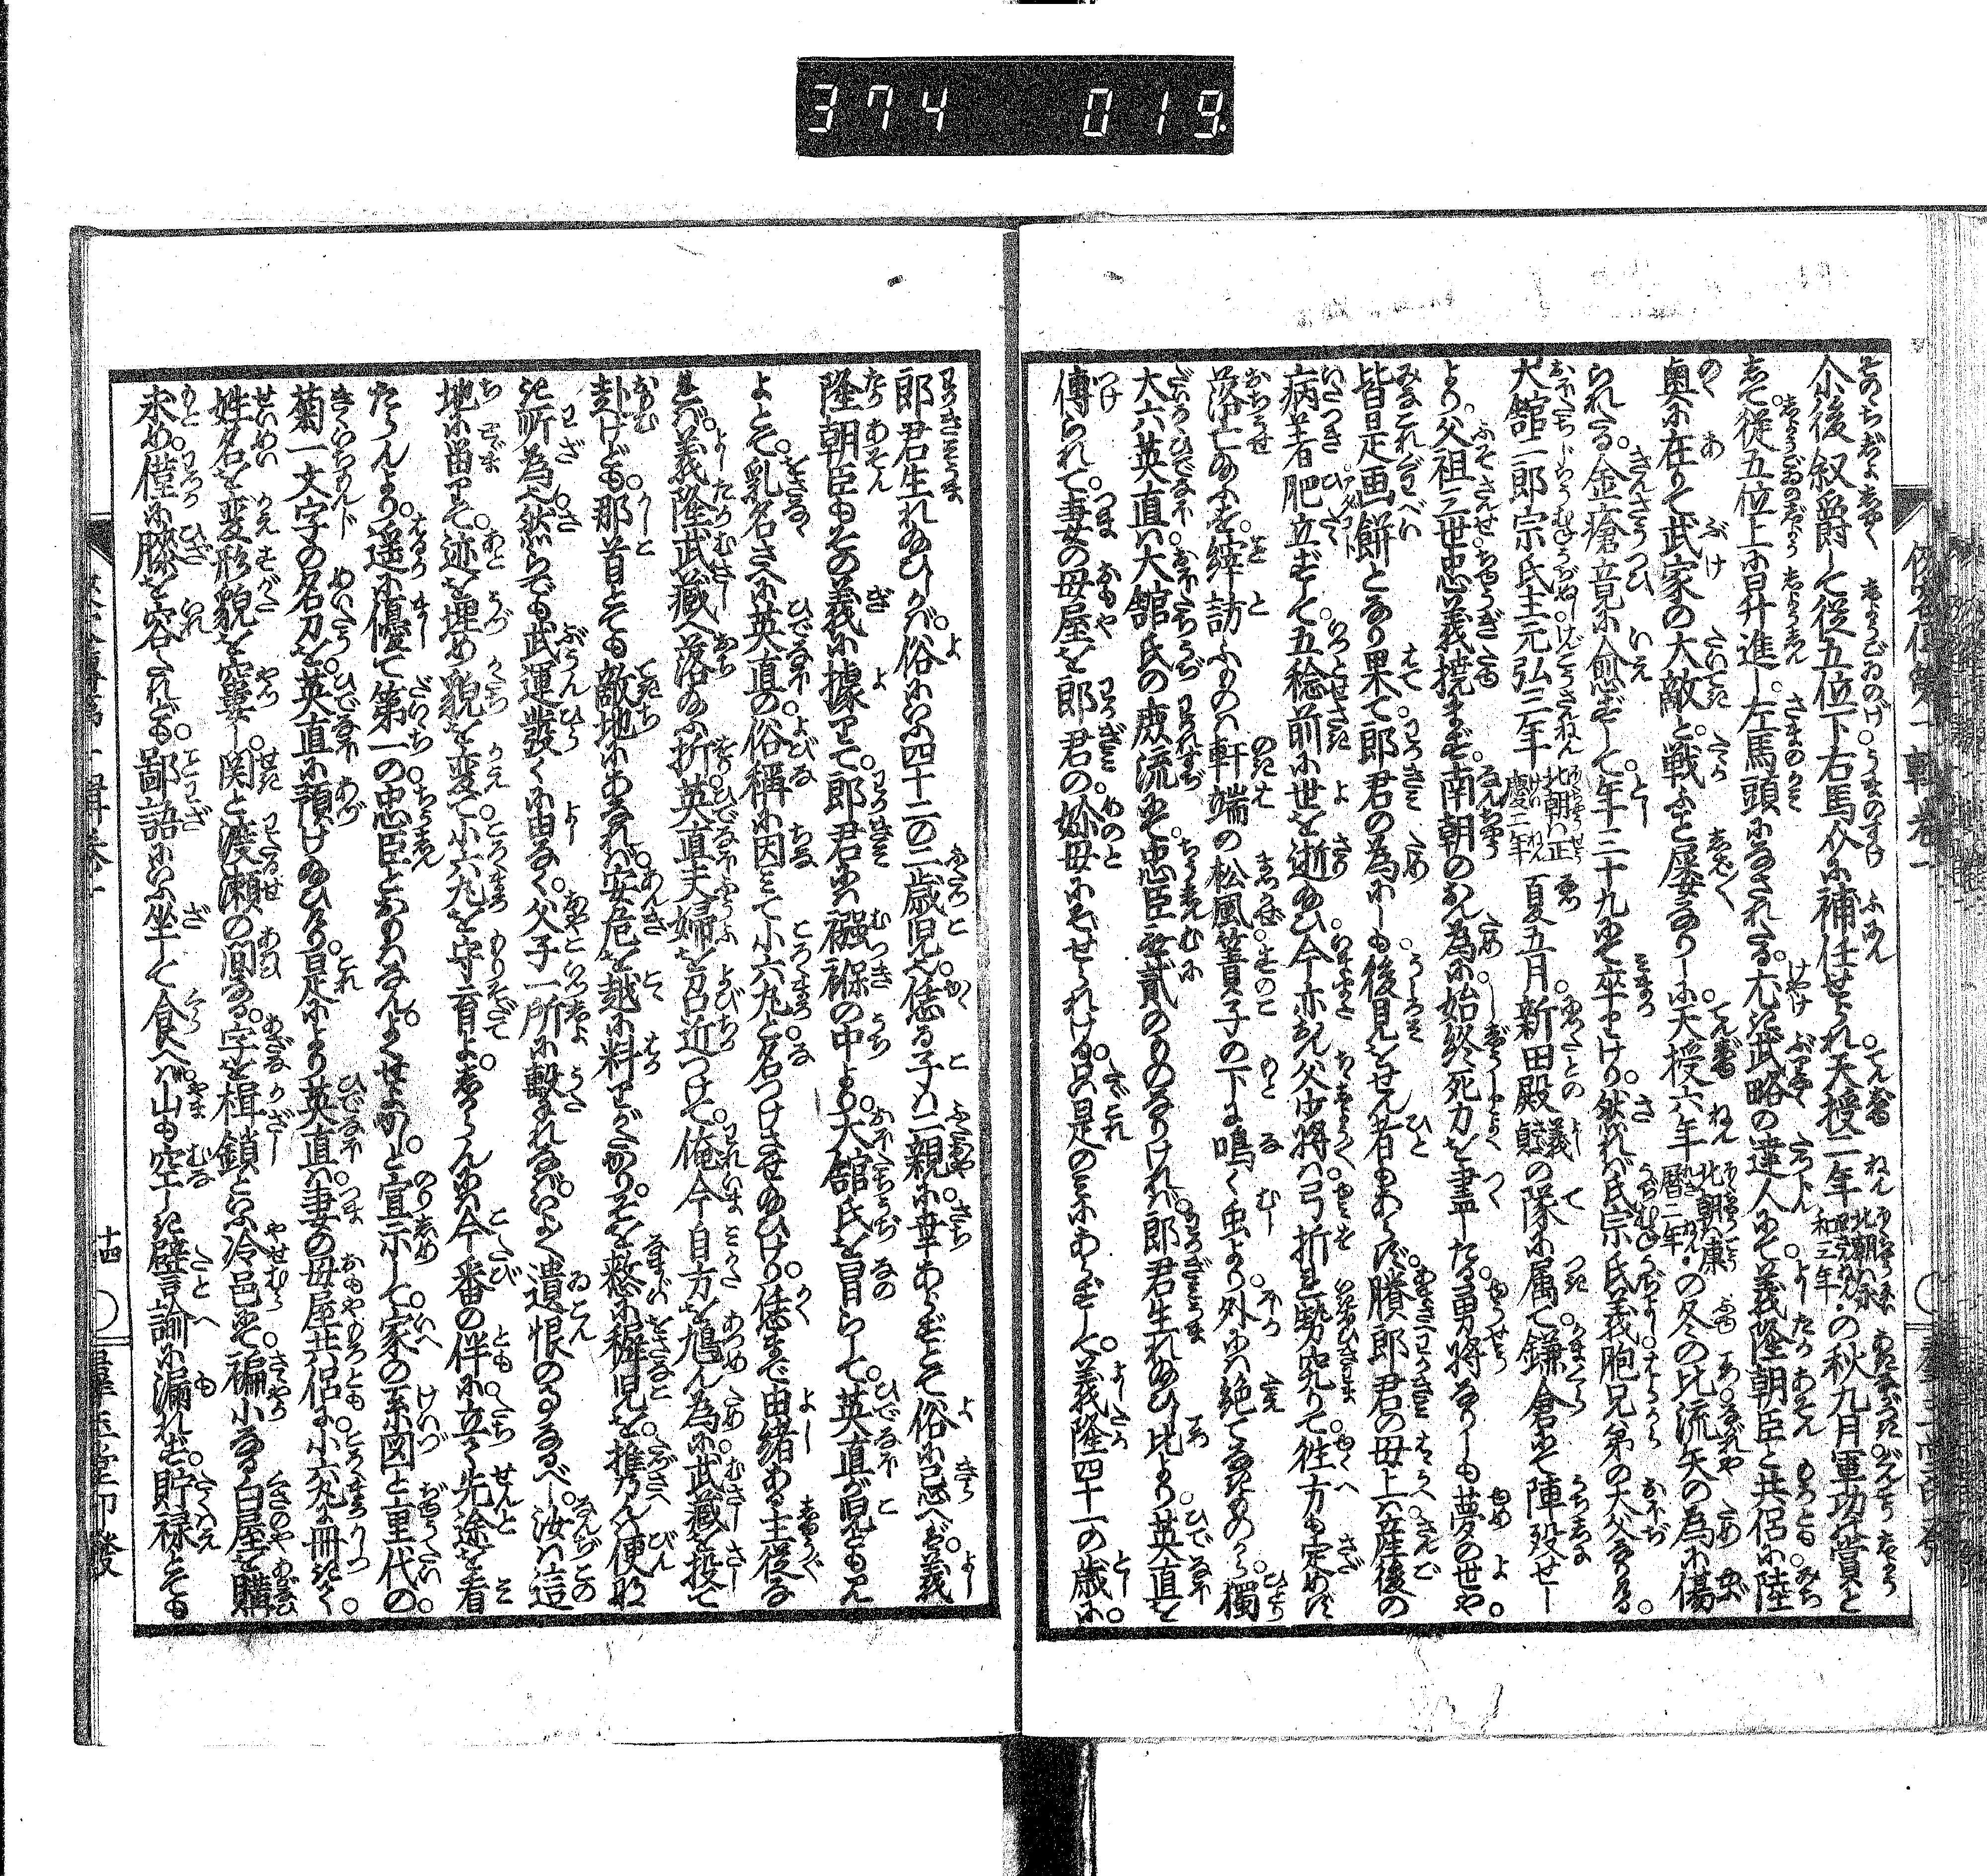 374 019
尓後叙爵して従五位下右馬介に補任せられ天授二年北朝は永和三年の秋九月軍功の賞と
して従五位上に昇進し左馬頭になされたる尤武略の達人にて義隆朝臣と共侶に陸
奥に在りて武家の大敵と戦ふこと屡なりしに天授六年北朝は康暦二年の冬の比流矢の為に傷
られたる金瘡竟に愈ずして年三十九にて卒りけり然れば氏宗氏義胞兄弟の大父なりける
大舘二郎宗氏主元弘三年北朝は正慶二年夏五月新田殿義貞の隊に属て鎌倉にて陣歿せし
より父祖三世忠義撓まず南朝のおん為に始終死力を盡したる勇将なりしも夢の世や
皆是画餅となり果て郎君の為にしも後見をせん者もあらず賸郎君の母上は産後の
病着肥立ずして五稔前に世を逝給ひ今亦おん父少将は弓折れ勢究りて往方も定めず
落亡給ふを縡訪ふものは軒端の松風簀子の下に鳴く虫より外には絶てなきものから獨
大六英直は大舘氏の庶流にて忠臣無貳のものなりければ郎君生れ給ひし比より英直を
傅られて妻の母屋を郎君の嬭母にぞせられける只是のみにあらずして義隆四十一の歳に
郎君生れ給ひしかば俗にいふ四十二の二歳児也恁る子は二親に幸あらずとて俗に忌へば義
隆朝臣もその義に據りて郎君は襁褓の中より大舘氏を冒らして英直が児ともせん
よとて乳名さへに英直の俗稱に因みて小六丸と名つけさせ給ひけり恁まで由緒ある主従な
れば義隆武藏へ落給ふ折英直夫婦を召近つけて俺今自方を鳩ん為に武藏を投て
赴けども那首とても敵地にあなれば安危を越に料りがたかりそを憖に穉児を推乃んは便な
き所為也然らでも武運發くに由なく父子一所に轂れなばいよゝ遺恨のことなるべし汝は這
地に畄りて迹を埋め貌を変て小六丸を守育よならんには今番の伴に立て先途を看
たらんより遥に優て第一の忠臣とおもはなんよくせよかしと宣示して家の系図と重代の
菊一文字の名刀を英直に預け給ひけり是により英直は妻の母屋共侶に小六丸を冊きて
姓名を変形貌を窶し関と渡瀬の間なる字を楫鎖といふ冷邑にて褊小なる白屋を購
求め僅に膝を容たれども鄙語にいふ坐して食へば山も空しき譬諭に漏れず貯禄とても
十四